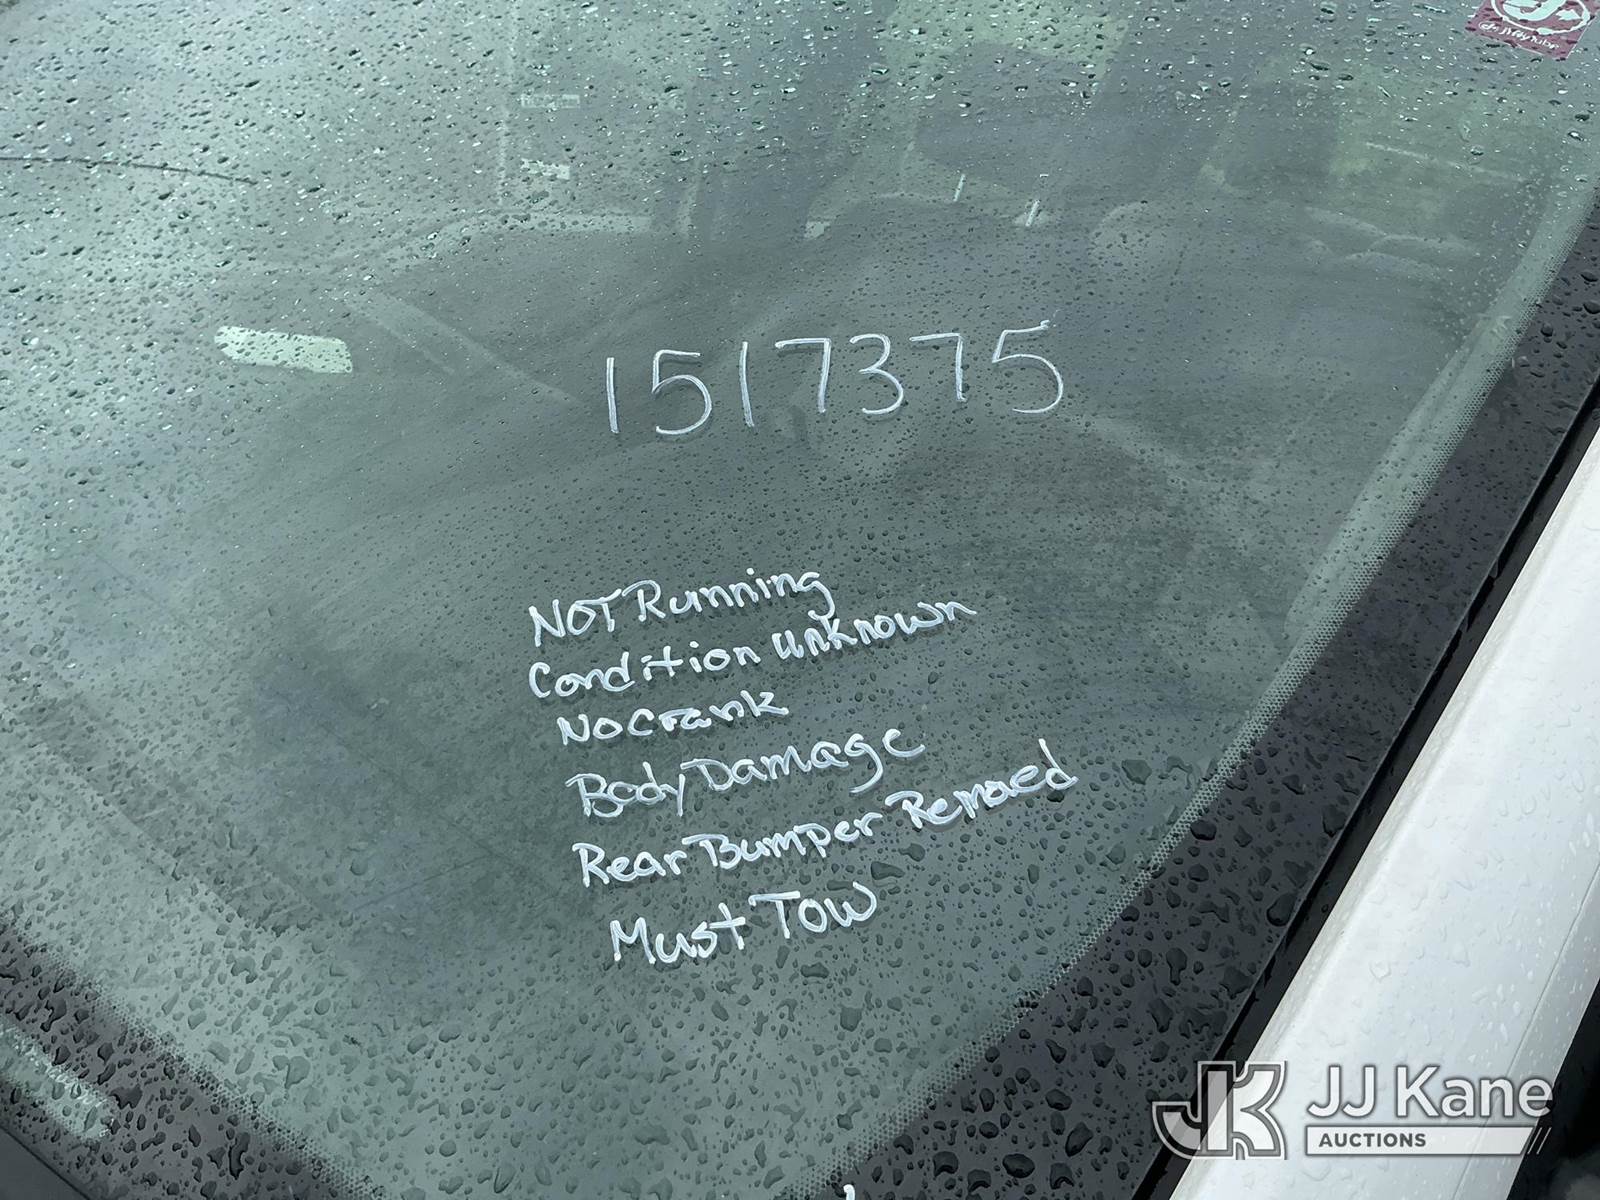 1517375
NOT Running
Condition Unknown
No Crank
Body Damage
Rear Bumper Remoed
Must Tow
JJ Kane
AUCTIONS